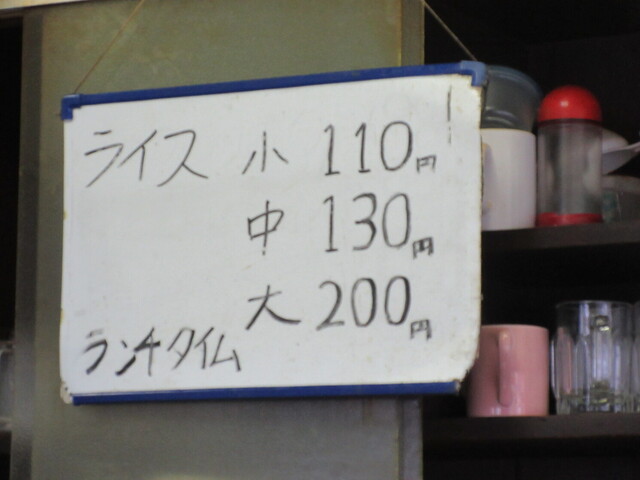 ライス 小 110円
中 130円
大 200円
ランチタイム